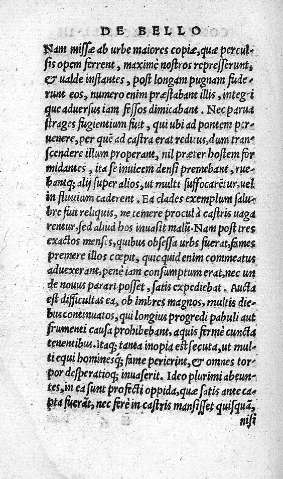 DE BELLO
Nam missæ ab urbe maiores copiæ, quæ percul-
sis opem ferrent, maximè nostros represserunt,
& ualde instantes, post longam pugnam fude-
runt eos, numero enim præstabant illis, integri
que aduersus iam fessos dimicabant. Nec parua
strages fugientium fuit, qui ubi ad pontem per-
uenere, per quē ad castra erat reditus, dum tran-
scendere illum properant, nil præter hostem for-
midantes, ita se inuicem densi premebant, rue-
bantq; alij super alios, ut multi suffocarētur, uel
in fluuium caderent. Ea clades exemplum salu-
bre fuit reliquis, ne temere procul à castris uaga
rentur, sed aliud hos inuasit malū. Nam post tres
exactos menses, quibus obsessa urbs fuerat, fames
premere illos cœpit, quicquid enim commeatus
aduexerant, penè iam consumptum erat, nec un
de nouus parari posset, satis expediebat. Aucta
est difficultas ea, ob imbres magnos, multis die
bus continuatos, qui longius progredi pabuli aut
frumenti causa prohibebant, aquis fermè cuncta
tenentibus. itaq; tanta inopia est secuta, ut mul
ti equi hominesq; fame perierint, & omnes tor
por desperatioq; inuaserit. Ideo plurimi abeun-
tes, in ea sunt profecti oppida, quæ satis ante ca-
pta fuerāt, nec ferè in castris mansisset quisquā,
nisi